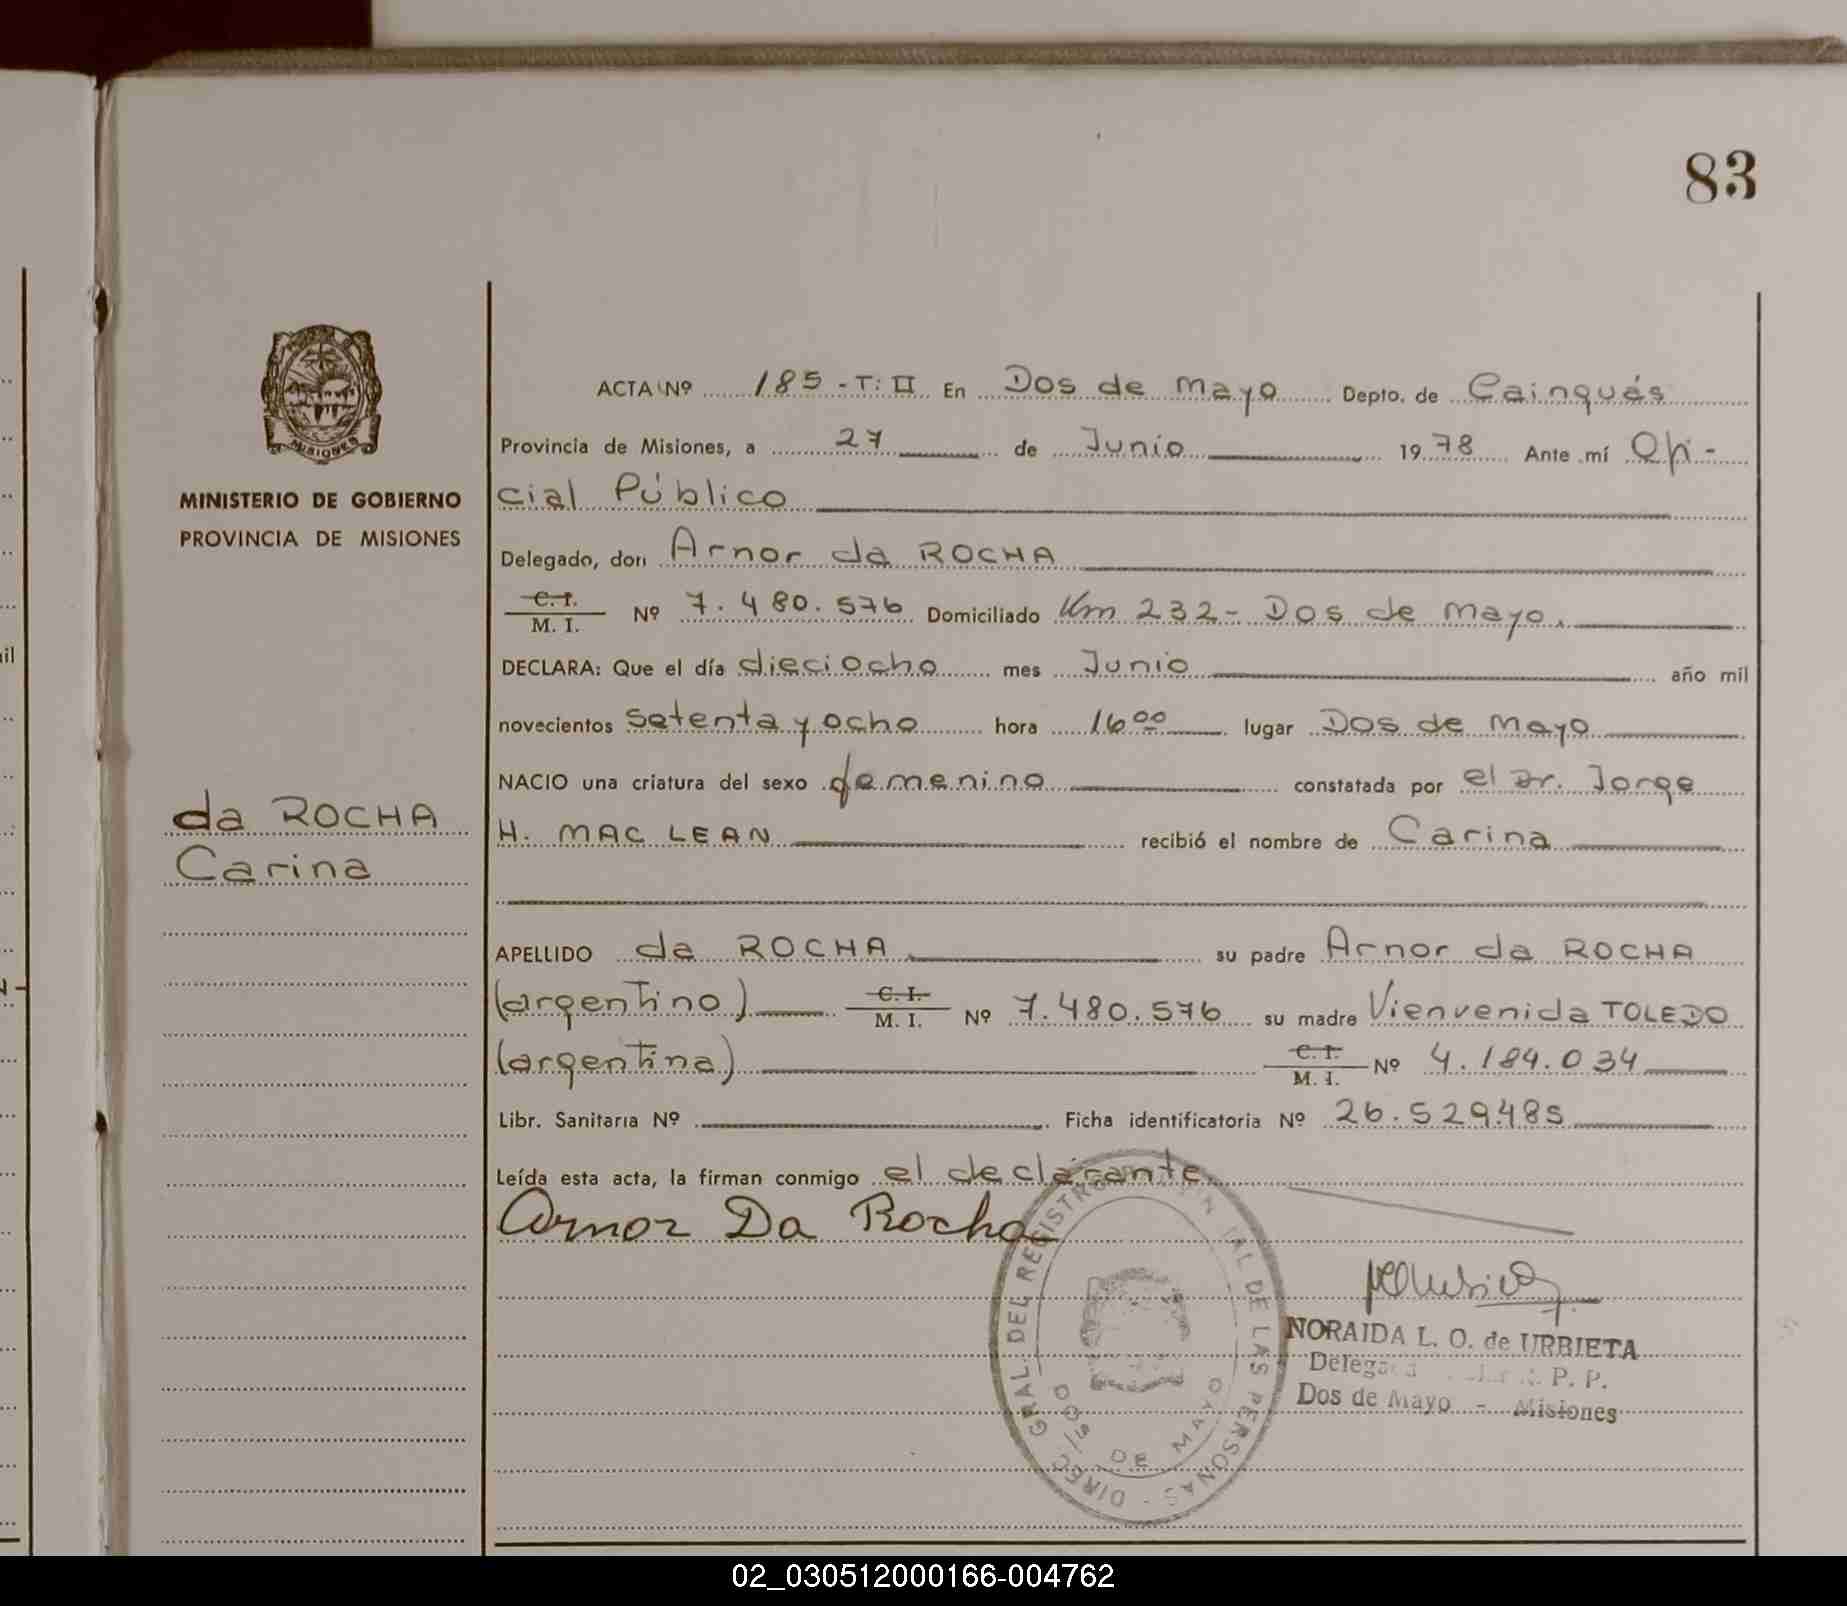 83
MISIONES
MINISTERIO DE GOBIERNO
PROVINCIA DE MISIONES
da ROCHA
Carina
ACTA Nº 185 - T: II En Dos de Mayo Depto. de Cainguás
Provincia de Misiones, a 27 de Junio 1978 Ante mí Ofi-
cial Público
Delegado, don Arnor da ROCHA
C. I. M. I. Nº 7.480.576 Domiciliado Km 232 - Dos de Mayo.
DECLARA: Que el día dieciocho mes Junio año mil
novecientos setenta y ocho hora 16 00 lugar Dos de Mayo
NACIO una criatura del sexo femenino constatada por el Dr. Jorge
H. MAC LEAN recibió el nombre de Carina
APELLIDO da ROCHA su padre Arnor da ROCHA
(argentino) C. I. M. I. Nº 7.480.576 su madre Vienvenida TOLEDO
(argentina) C. I. M. I. Nº 4.184.034
Libr. Sanitaria Nº Ficha identificatoria Nº 26.529.485
Leída esta acta, la firman conmigo el declarante
Arnor Da Rocha
DIREC. GRAL. DEL REGISTRO DE LAS PERSONAS -
DOS DE MAYO
NORAIDA L. O. de URBIETA
P. P.
Dos de Mayo - Misiones
02_030512000166-004762